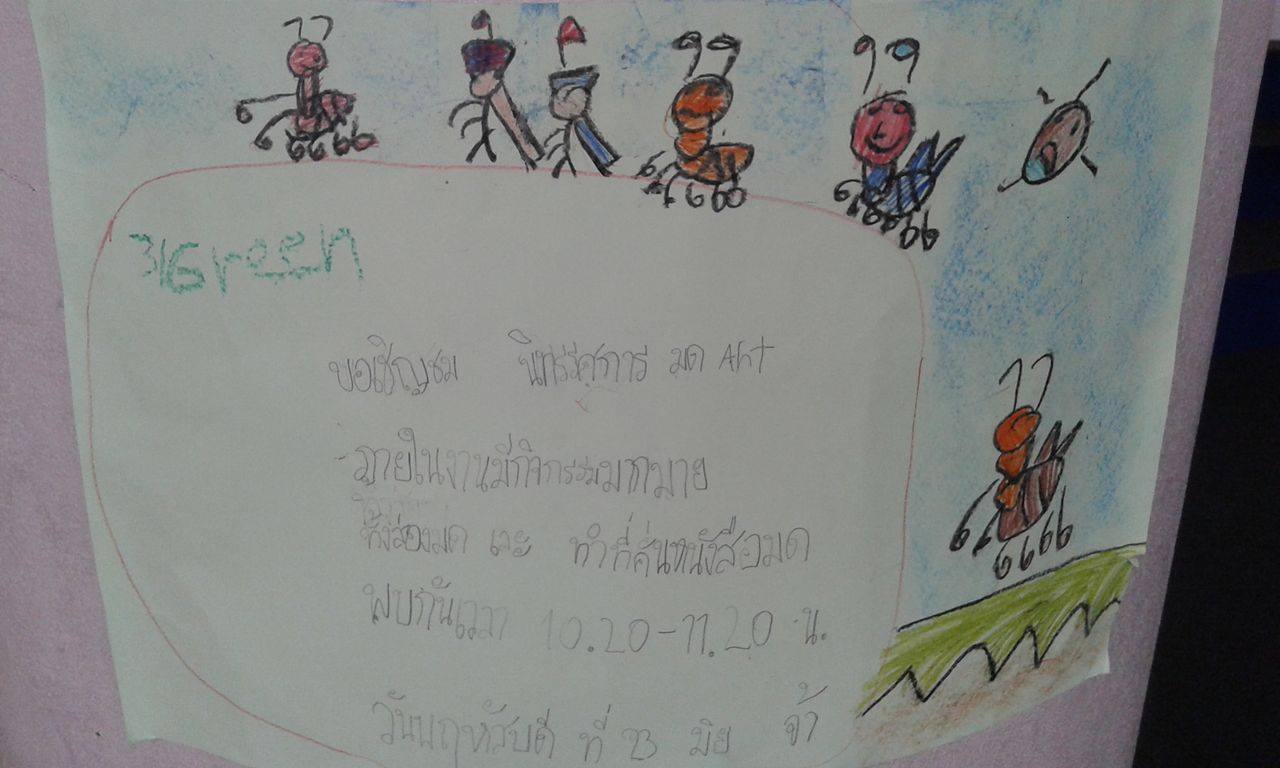 3/Green
ขอเชิญชม นิทรรศการ มด Ant
- ภายในงานมีกิจกรรมมากมาย
ทั้งส่องมด และ ทำที่คั่นหนังสือมด
พบกันเวลา 10.20-11.20 น.
วันพฤหัสบดี ที่ 23 มิย จ้า